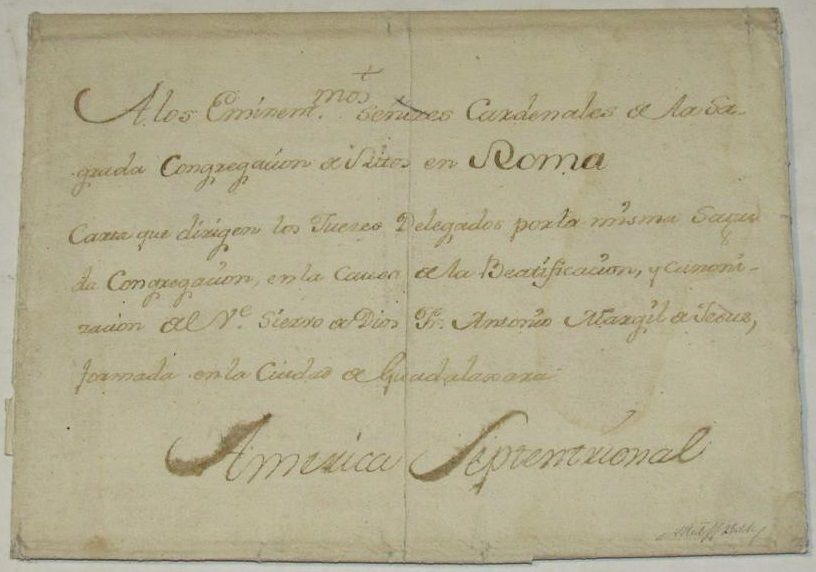 A los Eminem.mos Señores Cardenales de la Sa-
grada Congregacion de Rittos en Roma
Carta que dirigen los Jueces Delegados por la misma Sagra
da Congregacion, en la Causa de la Beatificacion, y canoni-
zacion del Ve. Siervo de Dios Fr. Antonio Margil de Jesus,
formada en la Ciudad de Guadalaxara
America Septentrional